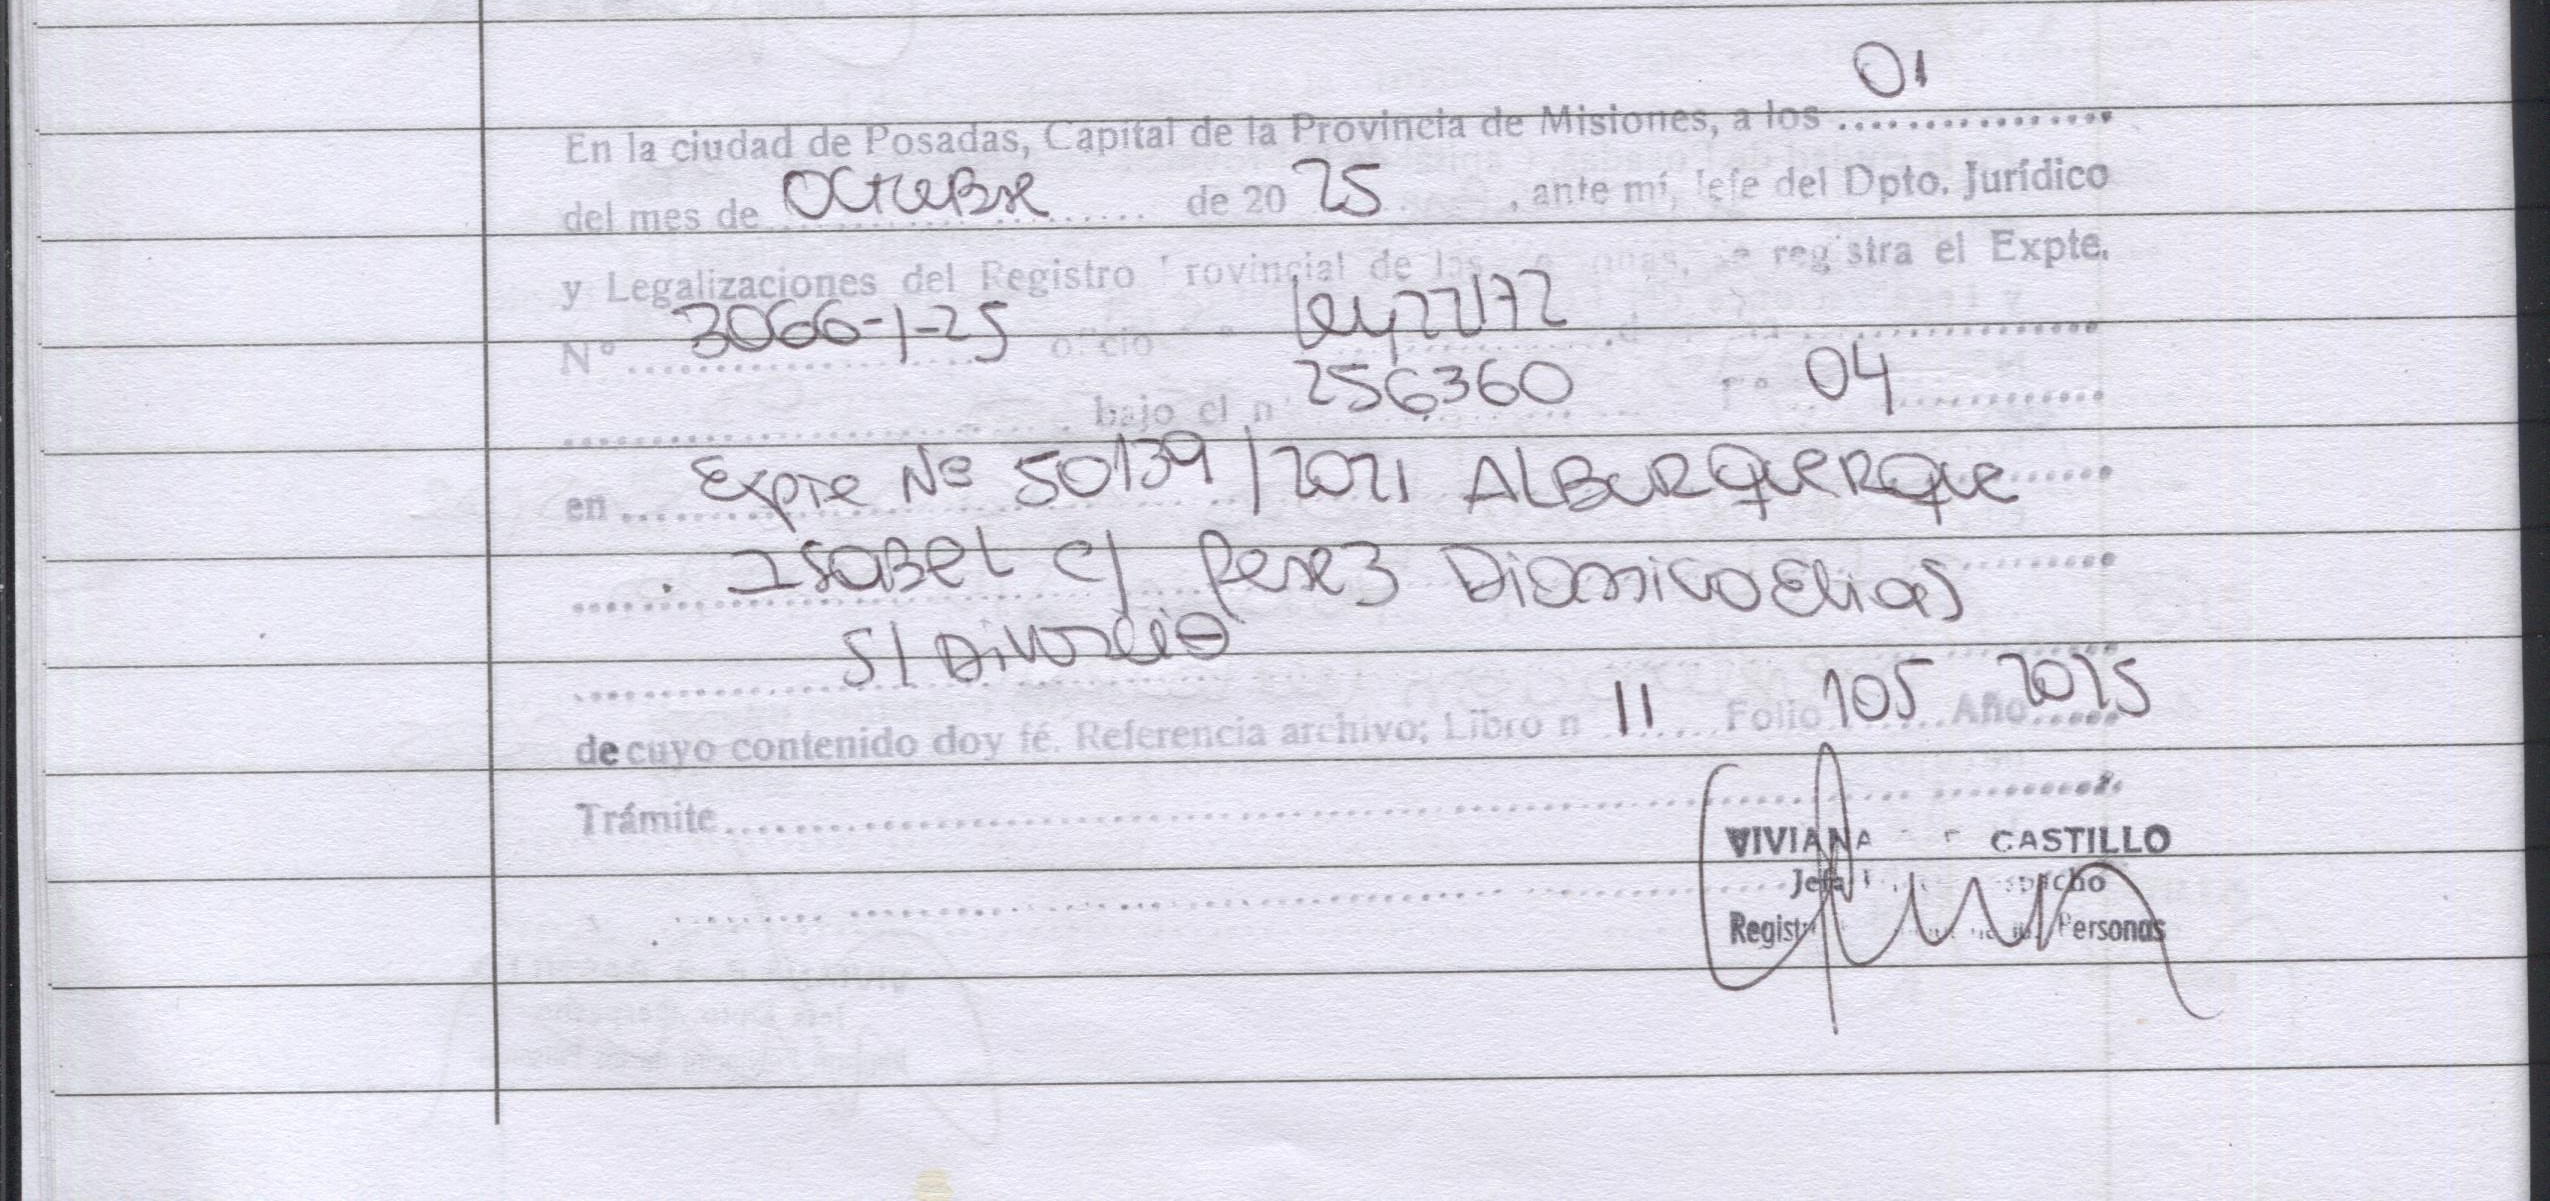 En la ciudad de Posadas, Capital de la Provincia de Misiones, a los 01
del mes de Octubre de 20 25, ante mí, Jefe del Dpto. Jurídico
y Legalizaciones del Registro Provincial de las registra el Expte.
N° 3066-1-25 oficio Ley 22172
bajo el n° 256360 F° 04
en Expte Nº 50139/2021 ALBURQUERQUE
Isabel c/ Perez Dionicio Elias
S/ Divorcio
de cuyo contenido doy fé. Referencia archivo; Libro n 11 Folio 105 Año 2025
Trámite
VIVIANA CASTILLO
Jefa
Personas